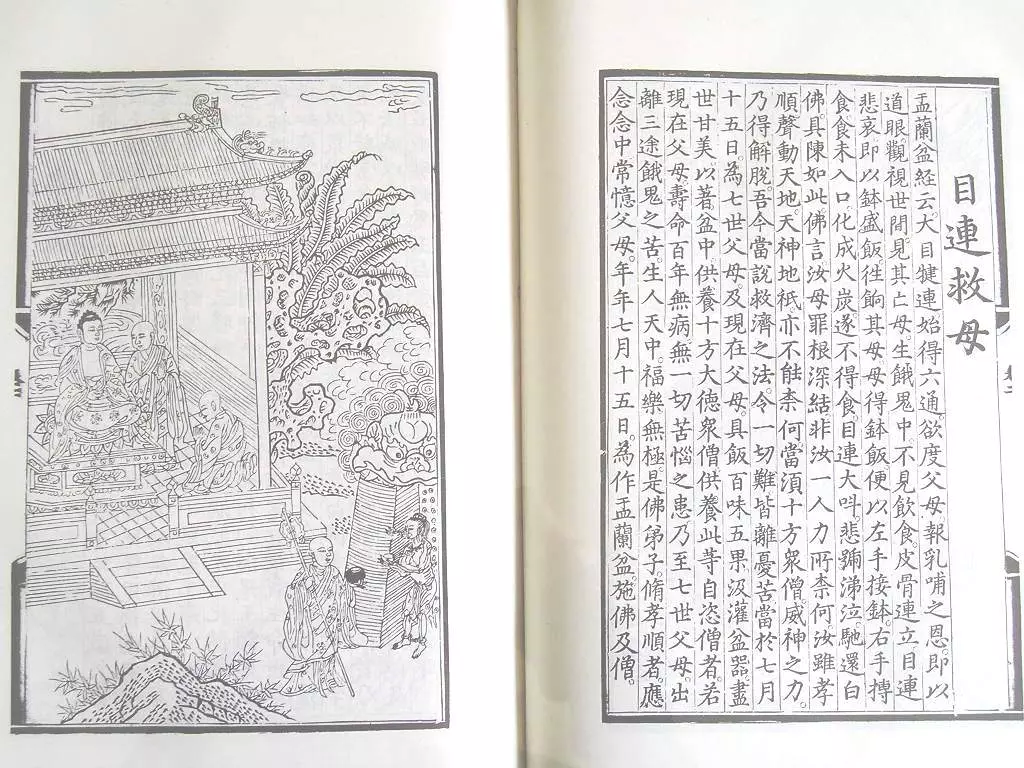 目連救母
盂蘭盆經云。大目犍連始得六通。欲度父母。報乳哺之恩。即以
道眼。觀視世間。見其亡母。生餓鬼中。不見飲食。皮骨連立。目連
悲哀。即以鉢盛飯。往餉其母。母得鉢飯。便以左手接鉢。右手摶
食。食未入口。化成火炭。遂不得食。目連大叫。悲號涕泣。馳還白
佛。具陳如此。佛言。汝母罪根深結。非汝一人力所柰何。汝雖孝
順。聲動天地。天神地祇。亦不能柰何。當須十方眾僧威神之力。
乃得解脫。吾今當說救濟之法。令一切難。皆離憂苦。當於七月
十五日。為七世父母。及現在父母。具飯百味五果。汲灌盆器。盡
世甘美。以著盆中。供養十方大德眾僧。供養此等自恣僧者。若
現在父母。壽命百年無病。無一切苦惱之患。乃至七世父母。出
離三途餓鬼之苦。生人天中。福樂無極。是佛弟子。脩孝順者。應
念念中。常憶父母。年年七月十五日。為作盂蘭盆。施佛及僧。